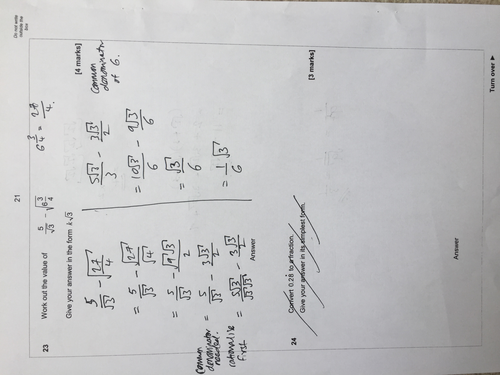 Do not write
outside the
box
21
23 Work out the value of 5/√3 − √(6 3/4)
6 3/4 = 27/4.
Give your answer in the form k√3
[4 marks]
5/√3 − √(27/4)
= 5/√3 − √27/√4
= 5/√3 − √9√3/2
Common denominator needed.
= 5/√3 − 3√3/2
rationalise first
= 5√3/√3√3 − 3√3/2
5√3/3 − 3√3/2
Common denominator of 6.
= 10√3/6 − 9√3/6
= √3/6
= 1/6 √3
Answer
24 Convert 0.28 to a fraction.
Give your answer in its simplest form.
[3 marks]
Answer
Turn over ►